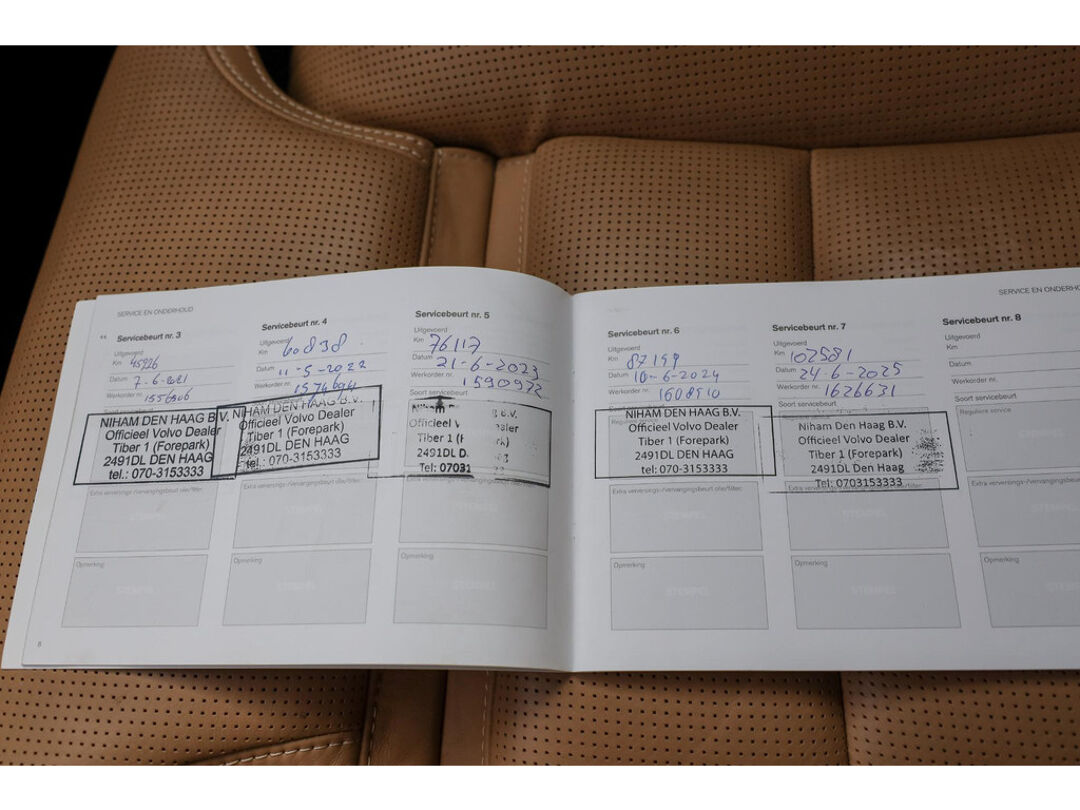 SERVICE EN ONDERHOUD
Servicebeurt nr. 3
Uitgevoerd
Km 45926
Datum 7-6-2021
Werkorder nr. 1556906
NIHAM DEN HAAG B.V.
Officieel Volvo Dealer
Tiber 1 (Forepark)
2491DL DEN HAAG
tel.: 070-3153333
Extra verversings-/vervangingsbeurt olie/filter:
Opmerking
8
Servicebeurt nr. 4
Uitgevoerd
Km 60838
Datum 11-5-2022
Werkorder nr. 1574694
NIHAM DEN HAAG B.V.
Officieel Volvo Dealer
Tiber 1 (Forepark)
2491DL DEN HAAG
tel.: 070-3153333
Extra verversings-/vervangingsbeurt olie/filter:
Opmerking
Servicebeurt nr. 5
Uitgevoerd
Km 76117
Datum 21-6-2023
Werkorder nr. 1590972
Soort servicebeurt
B.V.
Officieel
Tiber 1
2491DL D
Tel: 07031
Extra verversings-/vervangingsbeurt olie/filter:
Opmerking
STEMPEL
Servicebeurt nr. 6
Uitgevoerd
Km 87199
Datum 10-6-2024
Werkorder nr. 1608910
Soort servicebeurt
NIHAM DEN HAAG B.V.
Officieel Volvo Dealer
Tiber 1 (Forepark)
2491DL DEN HAAG
tel.: 070-3153333
Extra verversings-/vervangingsbeurt olie/filter:
STEMPEL
Opmerking
STEMPEL
SERVICE EN ONDERHOU
Servicebeurt nr. 7
Uitgevoerd
Km 102581
Datum 24-6-2025
Werkorder nr. 1626631
Soort servicebeurt
NIHAM DEN HAAG B.V.
Officieel Volvo Dealer
Tiber 1 (Forepark)
2491DL Den Haag
Tel: 0703153333
Extra verversings-/vervangingsbeurt olie/filter:
STEMPEL
Opmerking
STEMPEL
Servicebeurt nr. 8
Uitgevoerd
Km
Datum
Werkorder nr.
Soort servicebeurt
Reguliere service
Extra verversings-/vervangingsbeurt
Opmerking